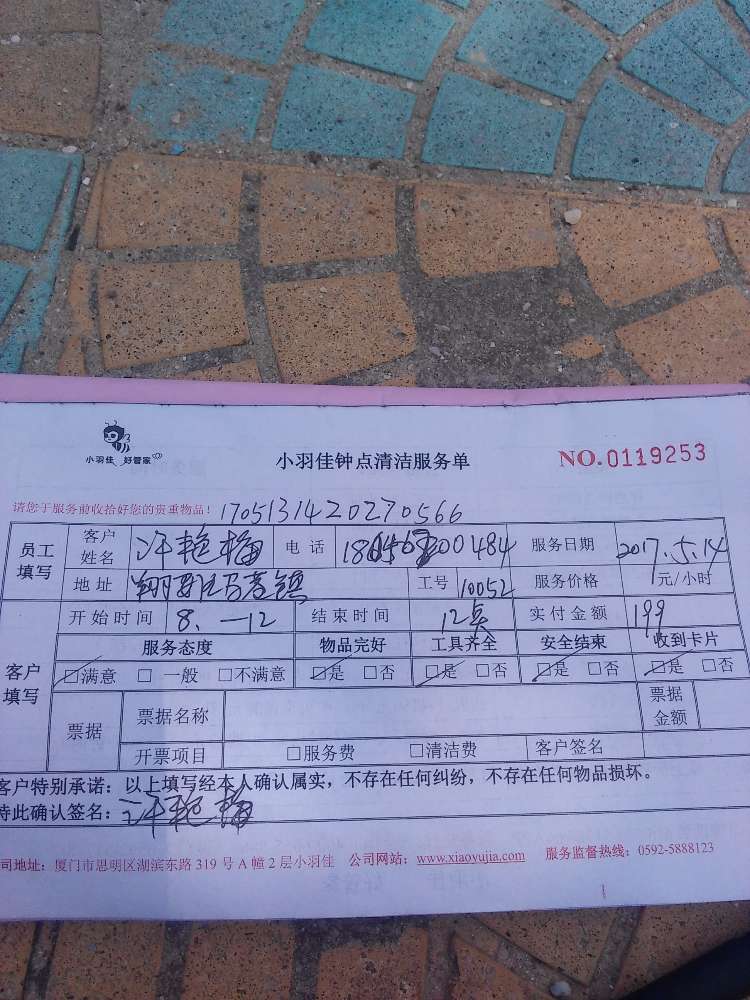 小羽佳 好管家
小羽佳钟点清洁服务单 NO.0119253
请您于服务前收拾好您的贵重物品! 1705131420270566
员工填写 客户姓名 许艳梅 电话 服务日期 2017.5.14
地址 翔安区马巷镇 工号 10052 服务价格 元/小时
客户填写 开始时间 8.—12 结束时间 12点 实付金额 199
服务态度 物品完好 工具齐全 安全结束 收到卡片
☑满意 □一般 □不满意 ☑是 □否 ☑是 □否 ☑是 □否 ☑是 □否
票据 票据名称 票据金额
开票项目 □服务费 □清洁费 客户签名
客户特别承诺：以上填写经本人确认属实，不存在任何纠纷，不存在任何物品损坏。
特此确认签名：许艳梅
司地址：厦门市思明区湖滨东路 319 号 A 幢 2 层小羽佳 公司网站：www.xiaoyujia.com 服务监督热线：0592-5888123